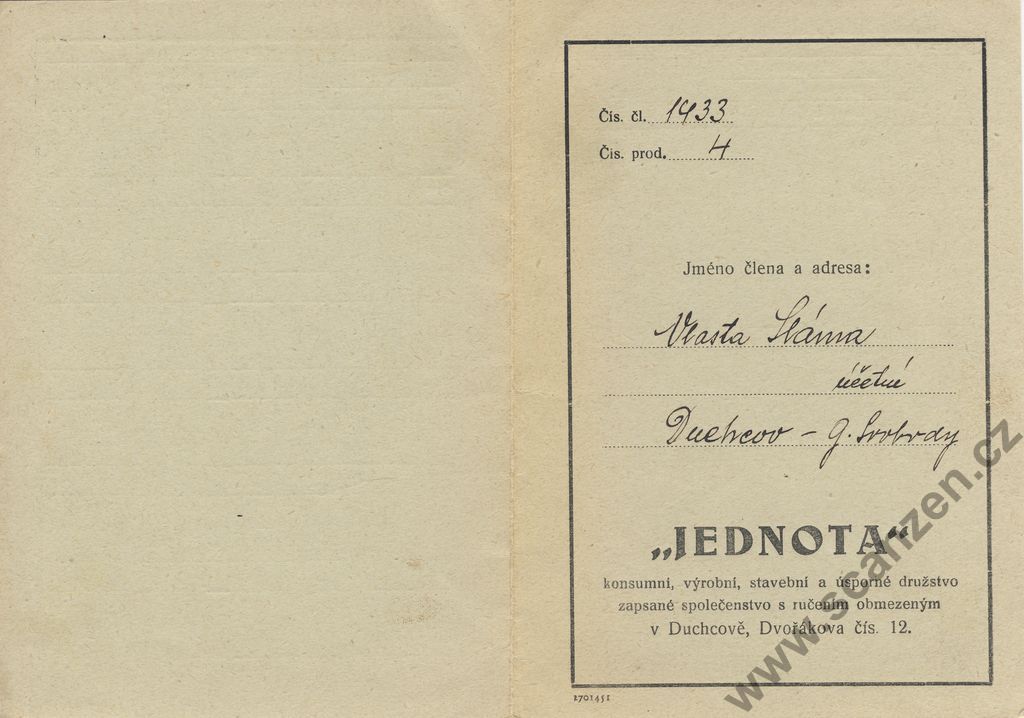 Čís. čl. 1933
Čis. prod. 4
Jméno člena a adresa:
Vlasta Sláma
účetní
Duchcov – G. Svobody
„JEDNOTA“
konsumní, výrobní, stavební a úsporné družstvo
zapsané společenstvo s ručením obmezeným
v Duchcově, Dvořákova čís. 12.
2701451
www.scanzen.cz